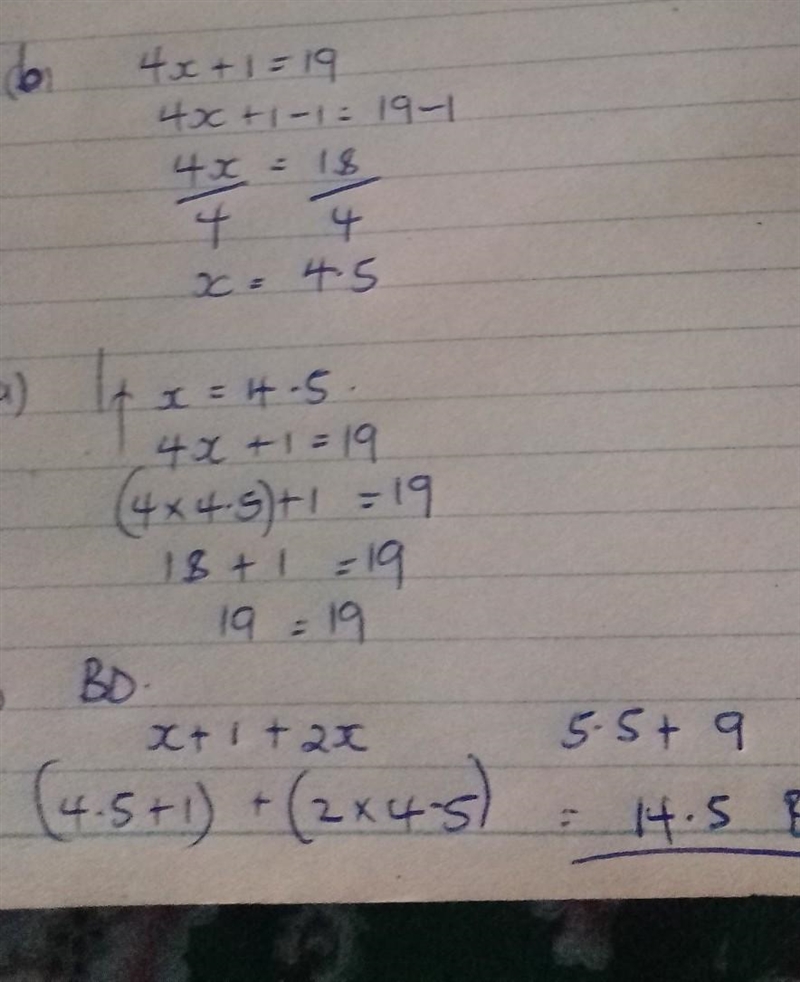 (b) 4x + 1 = 19
4x + 1 - 1 = 19 - 1
4x/4 = 18/4
x = 4.5
If x = 4.5.
4x + 1 = 19
(4 × 4.5) + 1 = 19
18 + 1 = 19
19 = 19
BD.
x + 1 + 2x 5.5 + 9
(4.5 + 1) + (2 × 4.5) = 14.5